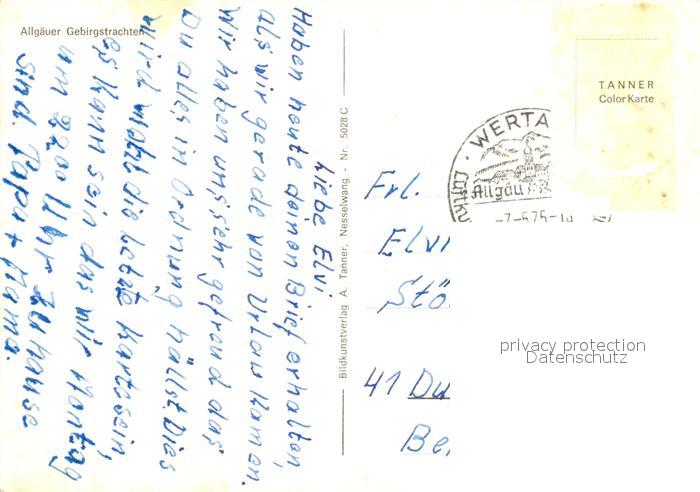 Allgäuer Gebirgstrachten
Liebe Elvi
Haben heute deinen Brief erhalten,
als wir gerade von Urlau kamen.
Wir haben uns sehr gefreud das
Du alles in Ordnung hällst. Dies
wird wohl die letzte Karte sein,
es kann sein das wir Montag
um 2200 Uhr zu hause
sind. Papa + Mama.
Bildkunstverlag A. Tanner, Nesselwang - Nr. 5028 C
TANNER
Color Karte
WERTA
Allgäu
Frl.
Elvi
Stö
41 Du
Be
privacy protection
Datenschutz